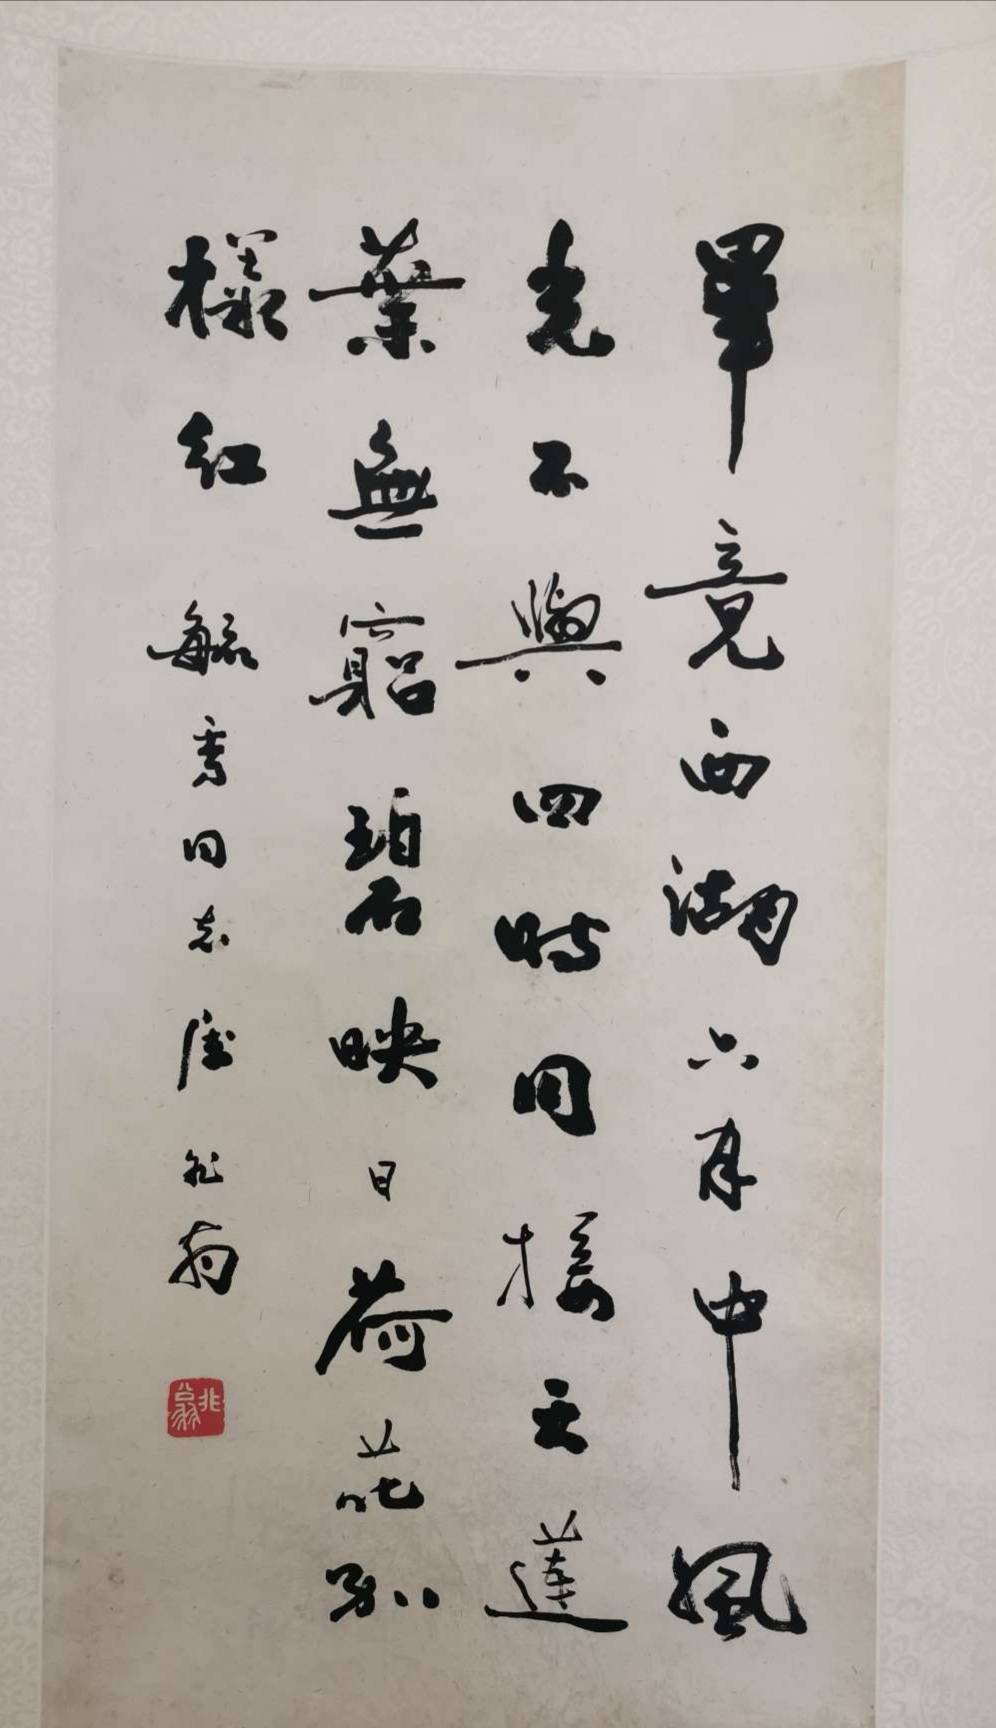 畢竟西湖六月中風
光不與四時同接天蓮
葉無竆碧映日荷花別
樣紅 毓秀同志